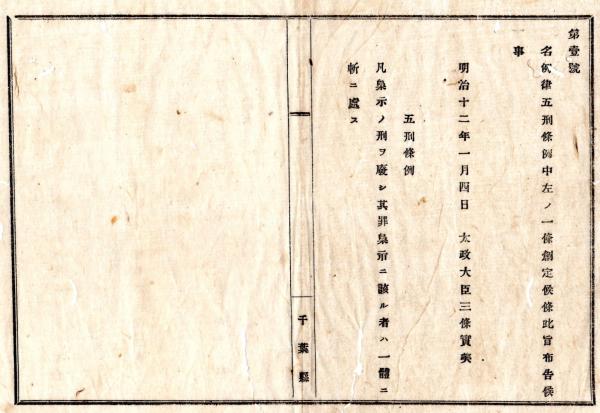 第壹號
名例律五刑條例中左ノ一條創定候條此旨布告候
事
明治十二年一月四日 太政大臣三條實美
五刑條例
凡梟示ノ刑ヲ廢シ其罪梟示ニ該ル者ハ一體ニ
斬ニ處ス
千葉縣